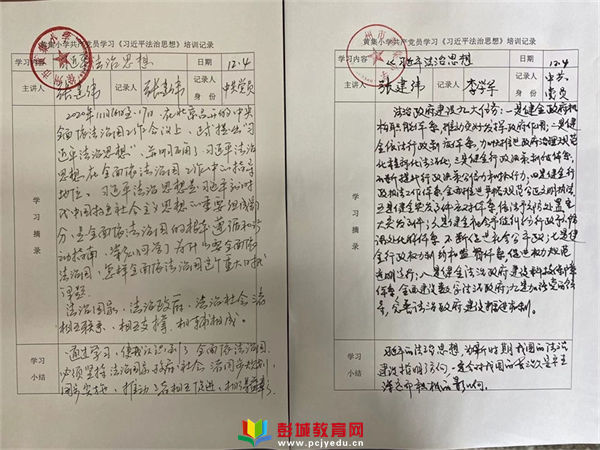 黄集小学共产党员学习《习近平法治思想》培训记录
学习内容
习近平法治思想
日期
12.4
主讲人
张建伟
记录人
张建伟
记录人
身份
中共党员
学习摘录
2020年11月16日-17日,在北京召开的中央
全面依法治国工作会议上,
近平法治思想",
思想在全面依法治国工作中指导
地位。习近平法治思想是习近平新时
代中国特色社会主义思想的重要组成部
分,是全面依法治国的根本遵循和行
动指南,
法治国、怎样全面依法治国这个重大时代
课题。
法治国家、法治政府、法治社会
相互联系、相互支撑、相辅相成。
学习小结
通过学习,使我认识到了全面依法治国
必须坚持法治国家、政府、社会
黄集小学共产党员学习《习近平法治思想》培训记录
学习内容
习近平法治思想
日期
12.4
主讲人
张建伟
记录人
李学军
记录人
身份
中共党员
学习摘录
法治政府建设九大任务:一是健全政府机
构职能体系,推动更好发挥政府作用;二是健
全依法行政制度体系,加快推进政府治理规范
化程序化法治化;三是健全行政决策制度体系,
不断提升行政决策公信力和执行力;四是健全
行政执法工作体系,全面推进严格规范公正文明执法;
五是健全突发事件应对体系,依法
大突发事件;六是健全社会矛盾纠纷行政预防
调处化解体系,不断促进社会公平正义;七是健全
行政权力制约和监督体系,促进行政权力规范
透明运行;八是健全法治政府建设科技保障
体系,全面建设数字法治政府;九是加强党的领
导,完善法治政府建设推进机制。
学习小结
习近平的法治思想,为新时期我国的法治
建设指明了方向,
彭城教育网
www.pcjyedu.cn